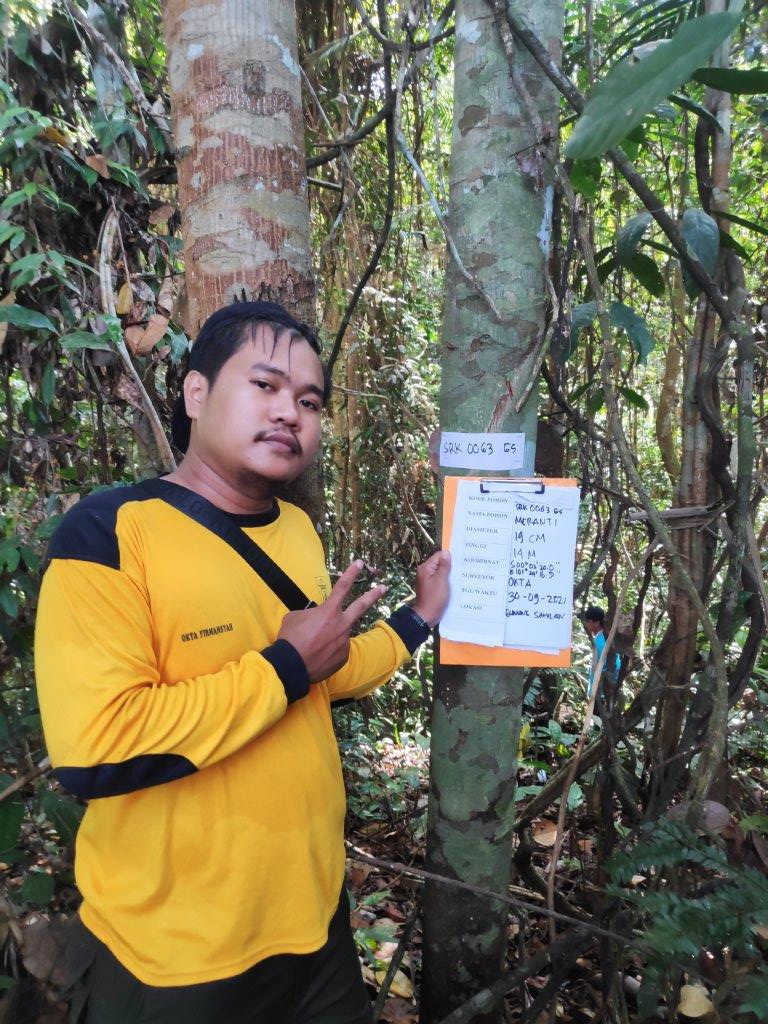 SRK 0063 GS
KODE POHON SRK 0063 GS
NAMA POHON MERANTI
DIAMETER 19 CM
TINGGI 14 M
KOORDINAT S 00° 05' 20.0"
E 101° 24' 6.5
SURVEYOR OKTA
TGL/WAKTU 30-09-2021
LOKASI GUNUNG SAHILAN
OKTA FIRMANSYAH